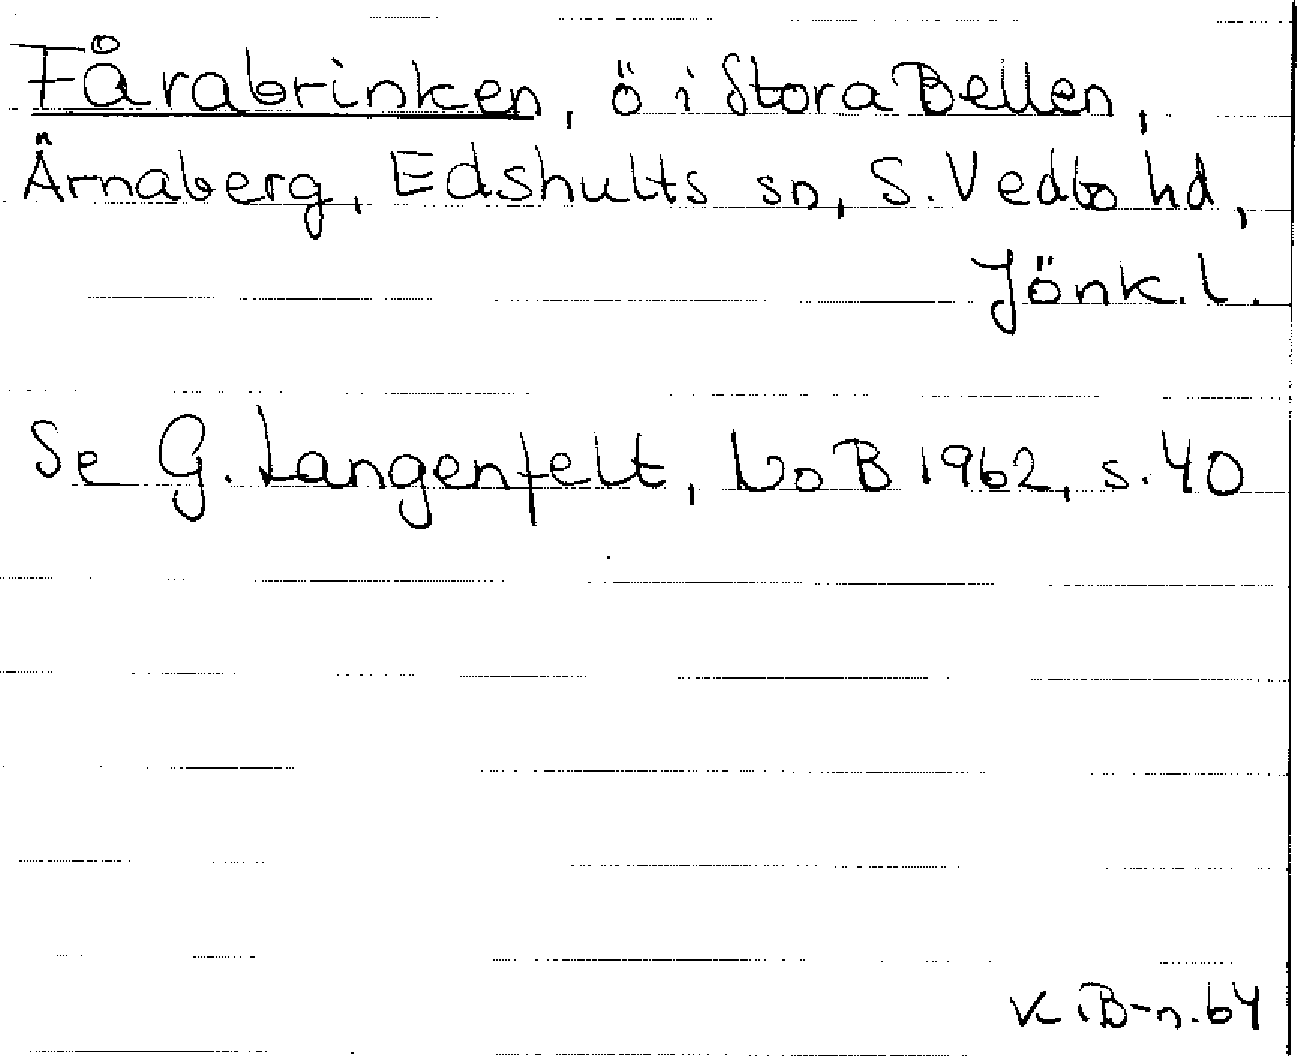 Fårabrinken, ö i Stora Bellen,
Ärnaberg, Edshults sn, S. Vedbo hd,
Jönk. l.
Se G. Langenfelt, VoB 1962, s. 40
K. B-n. 64